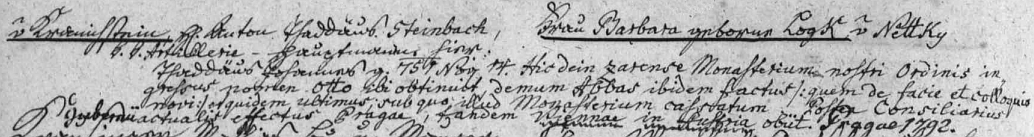 v Kranichstein, H. Anton Thaddäus Steinbach, Frau Barbara geborne Logk v Nettky
k. k. Artillerie - Hauptmanns hier.
Thaddäus Johannes g. 751 Nbr 14. Hic dein zarense Monasterium nostri Ordinis in
gressus nomen Otto sibi obtinuit demum Abbas ibidem factus /: quem de facie et colloquio
novi :/ et quidem ultimus, sub quo, illud Monasterium cassatum Postea Consiliarius
Gubernii actualis effectus Pragae, tandem in obiit. Pragae 1792.